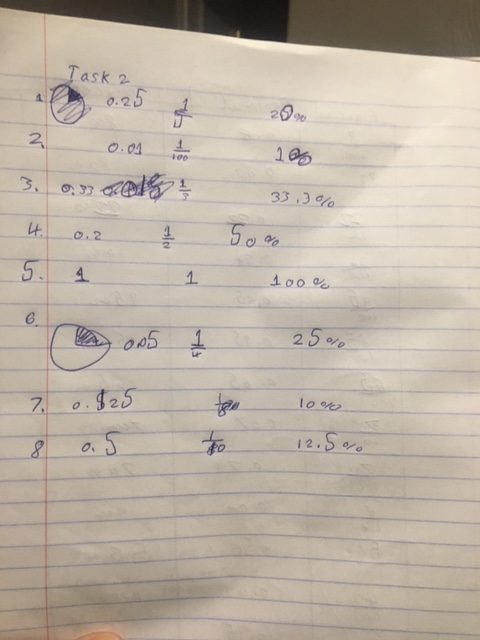 Task 2
1. 0.25 1/5 20%
2. 0.01 1/100 1%
3. 0.33 1/3 33.3%
4. 0.2 1/2 50%
5. 1 1 100%
6.
0.05 1/4 25%
7. 0.125 1/8 10%
8 0.5 1/10 12.5%